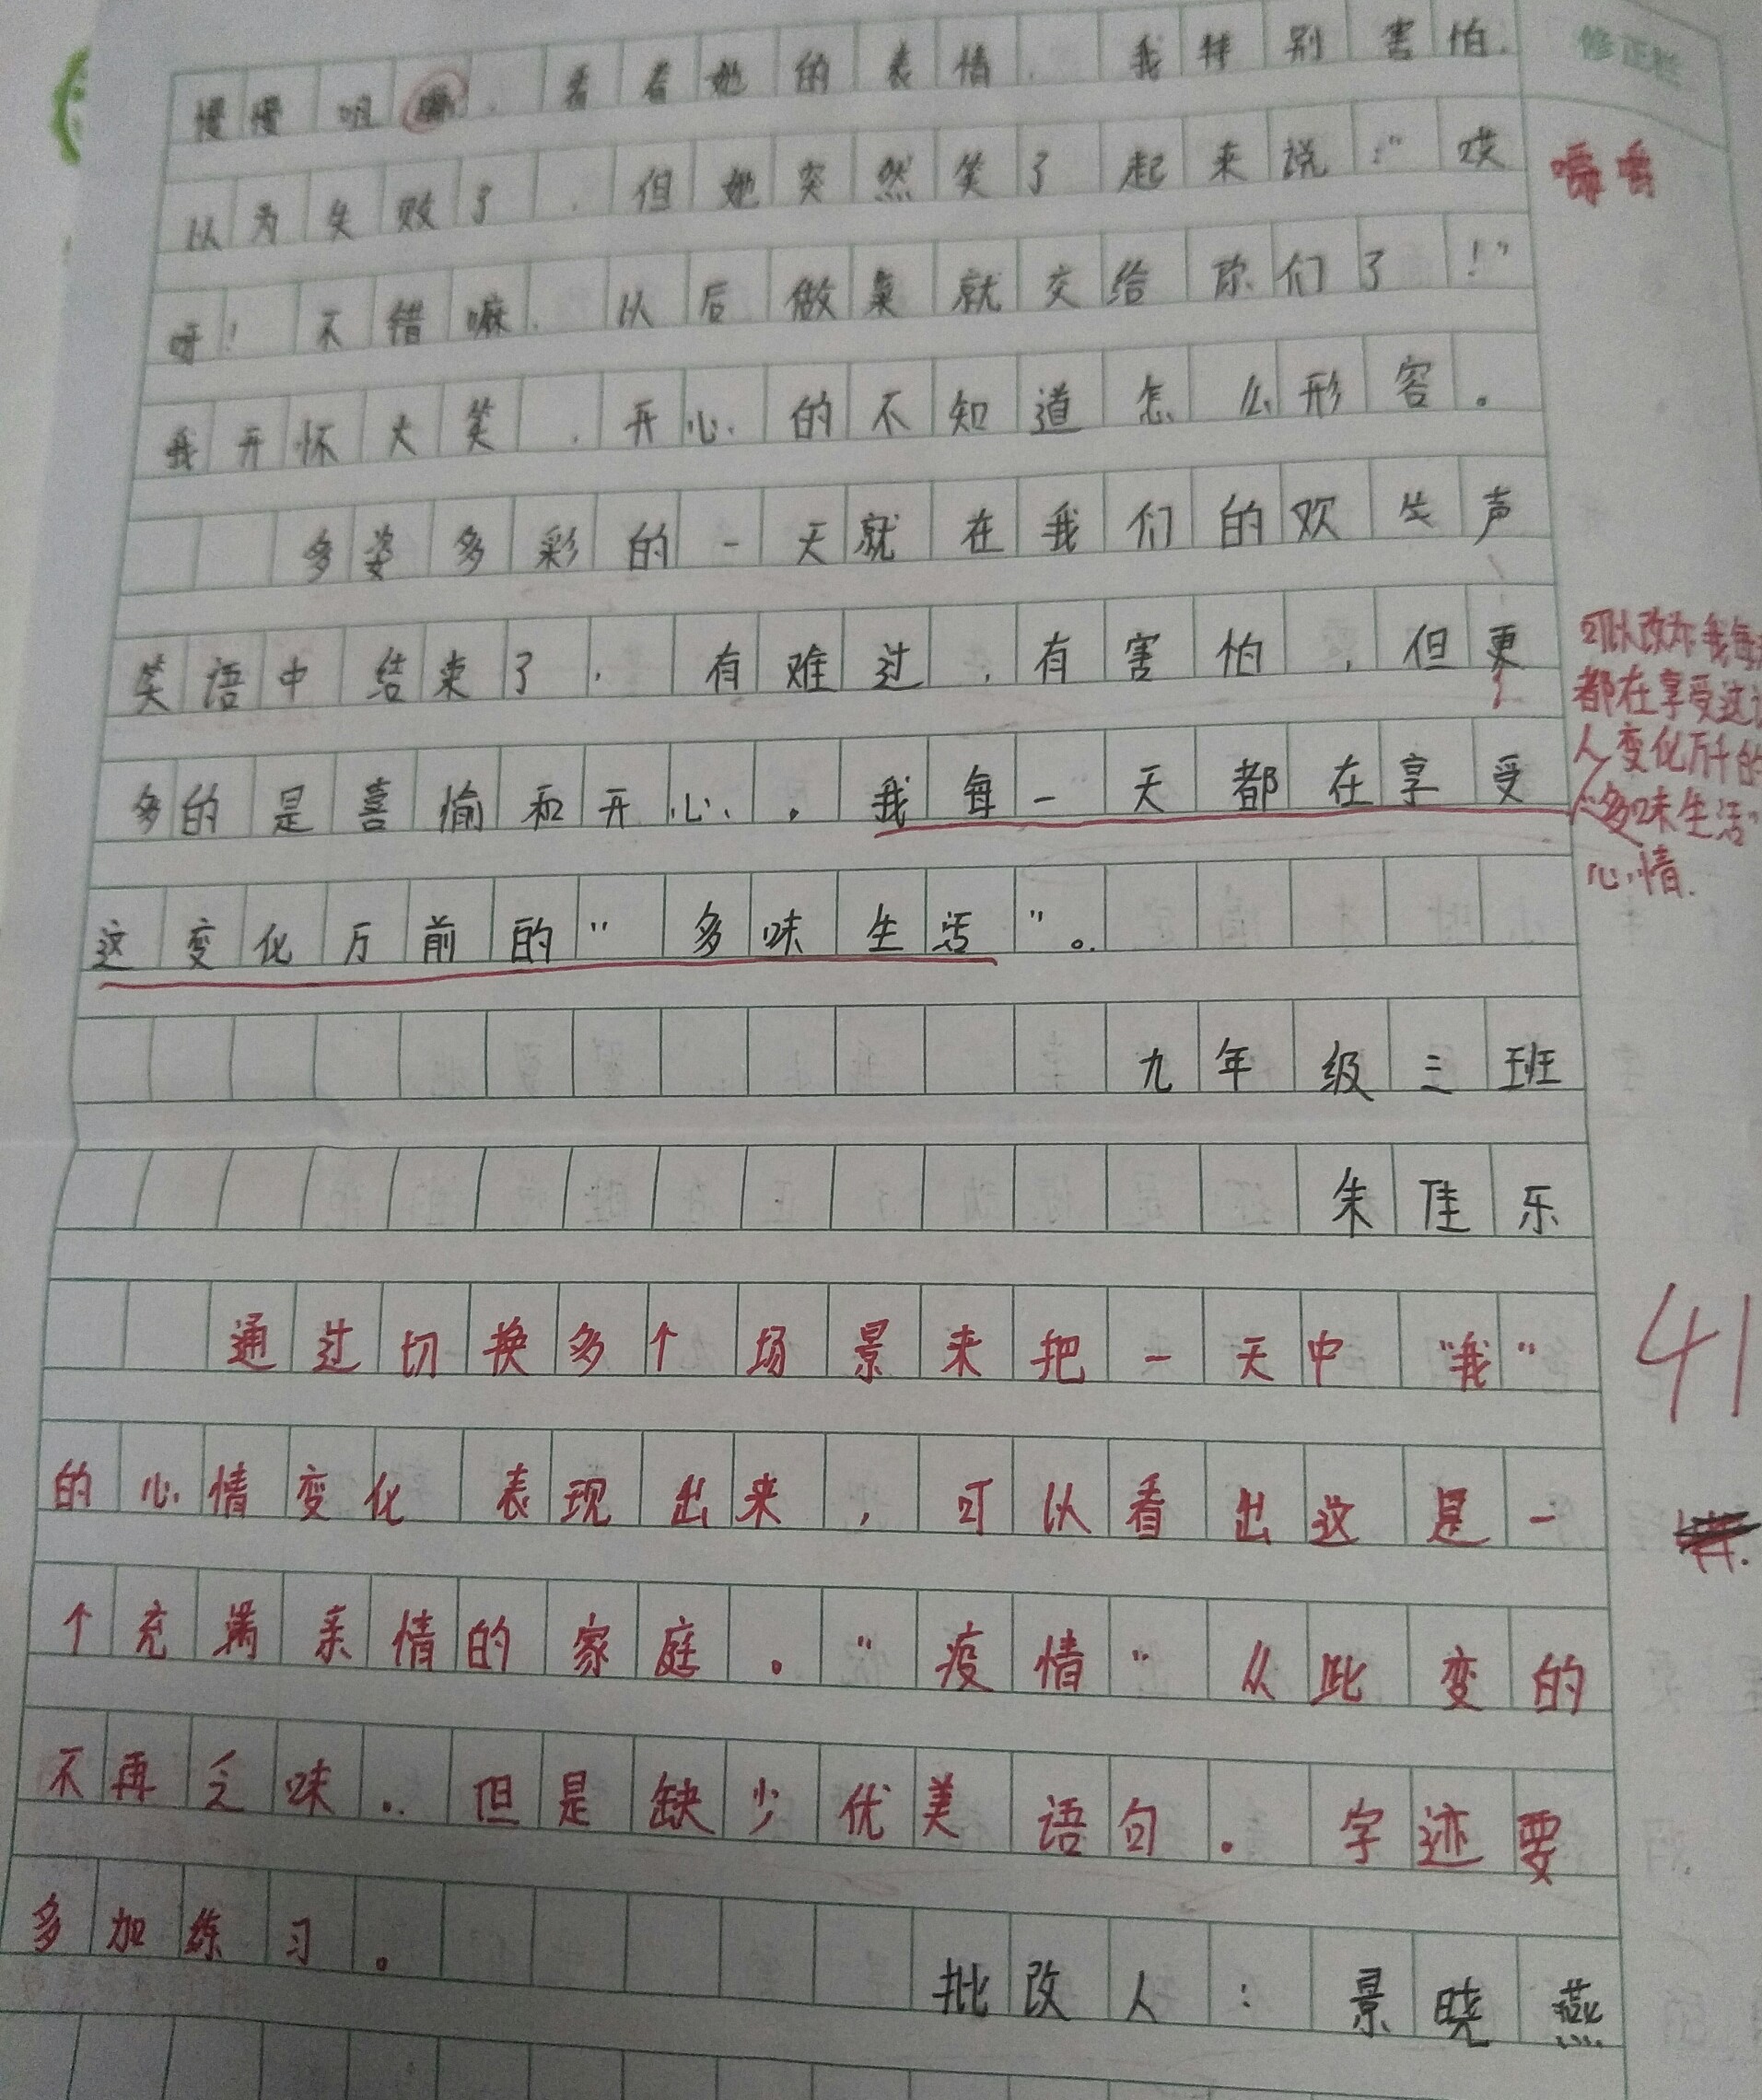 修正栏
慢慢咀嚼，看着她的表情，我特别害怕，
以为失败了，但她突然笑了起来说："哎
嚼 嚼
呀！不错嘛，以后做菜就交给你们了！"
我开怀大笑，开心的不知道怎么形容。
多姿多彩的一天就在我们的欢生声
笑语中结束了，有难过，有害怕，但更
多的是喜愉和开心。我每一天都在享受
这变化万前的"多味生活"。
可以改为：我每
都在享受这
人变化万千的
"多味生活"
心情.
九年级三班
朱佳乐
通过切换多个场景来把一天中"我"
的心情变化表现出来，可以看出这是一
个充满亲情的家庭。"疫情"从此变的
不再乏味。但是缺少优美语句。字迹要
多加练习。
41
批改人：景晓燕